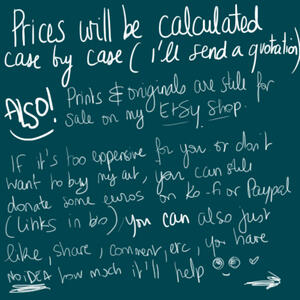 Prices will be calculated
case by case (i'll send a quotation)
ALSO!
Prints & originals are still for
sale on my Etsy shop.
If it's too expensive for you or don't
want to buy my art, you can still
donate some euros on Ko-fi or Paypal
(links in bio), you can also just
like, share, comment, etc, you have
NO IDEA how much it'll help